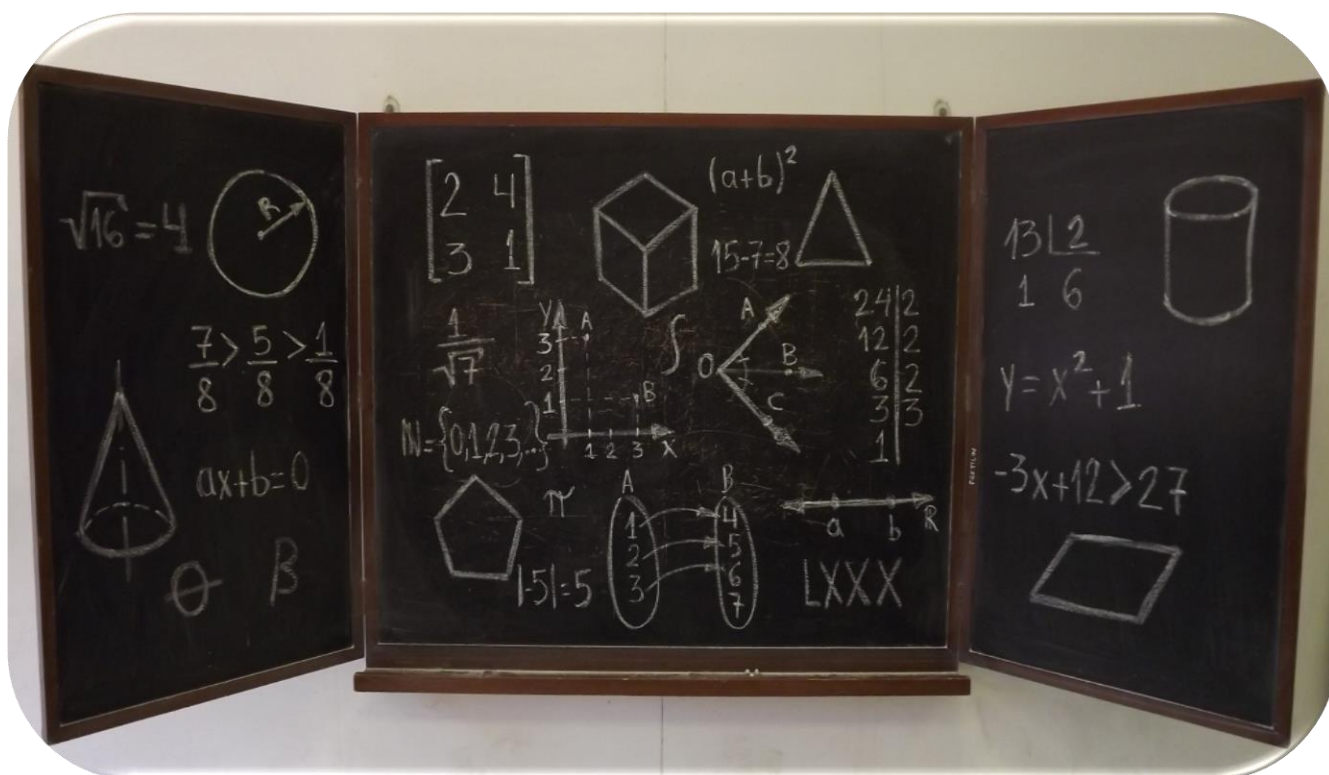 √16 = 4
R
7/8 > 5/8 > 1/8
ax+b=0
θ
β
[2 4
3 1]
(a+b)²
15-7=8
1/√7
Y
3
2
1
A
B
1 2 3 X
∫
O
A
B
C
24|2
12|2
6|2
3|3
1|
ℕ={0,1,2,3,...}
π
|-5|=5
A
1
2
3
B
4
5
6
7
a b R
LXXX
13|2
1 6
Y=x²+1
-3x+12>27